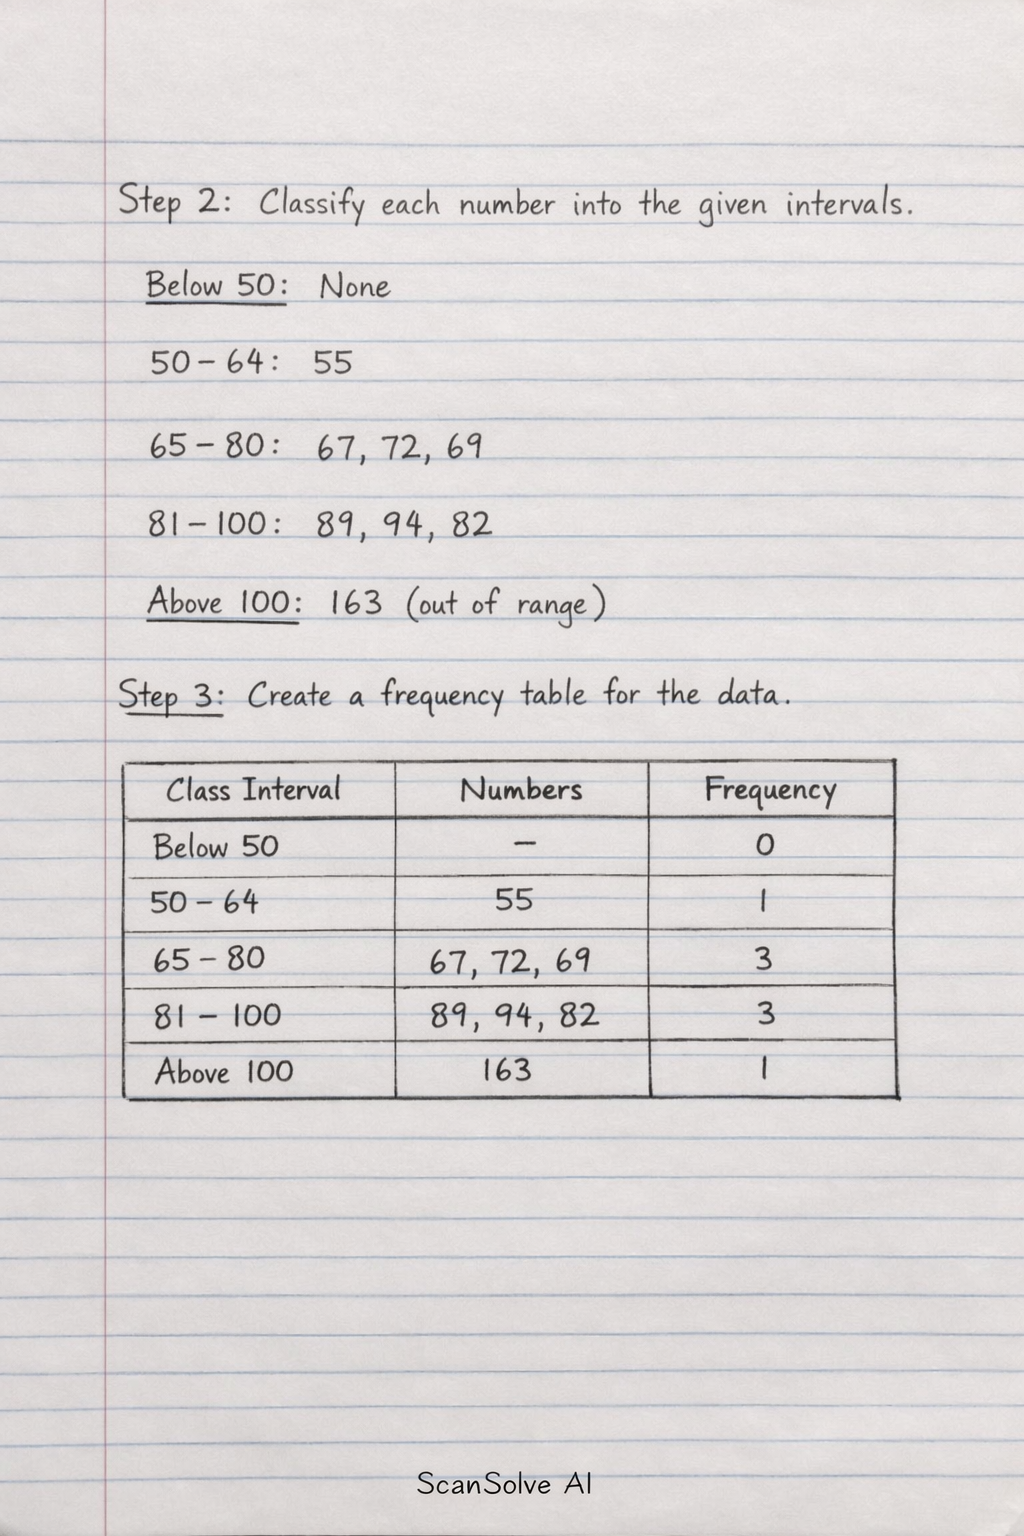 Step 2: Classify each number into the given intervals.
Below 50: None
50 – 64: 55
65 – 80: 67, 72, 69
81 – 100: 89, 94, 82
Above 100: 163 (out of range)
Step 3: Create a frequency table for the data.
Class Interval Numbers Frequency
Below 50 – 0
50 – 64 55 1
65 – 80 67, 72, 69 3
81 – 100 89, 94, 82 3
Above 100 163 1
ScanSolve AI